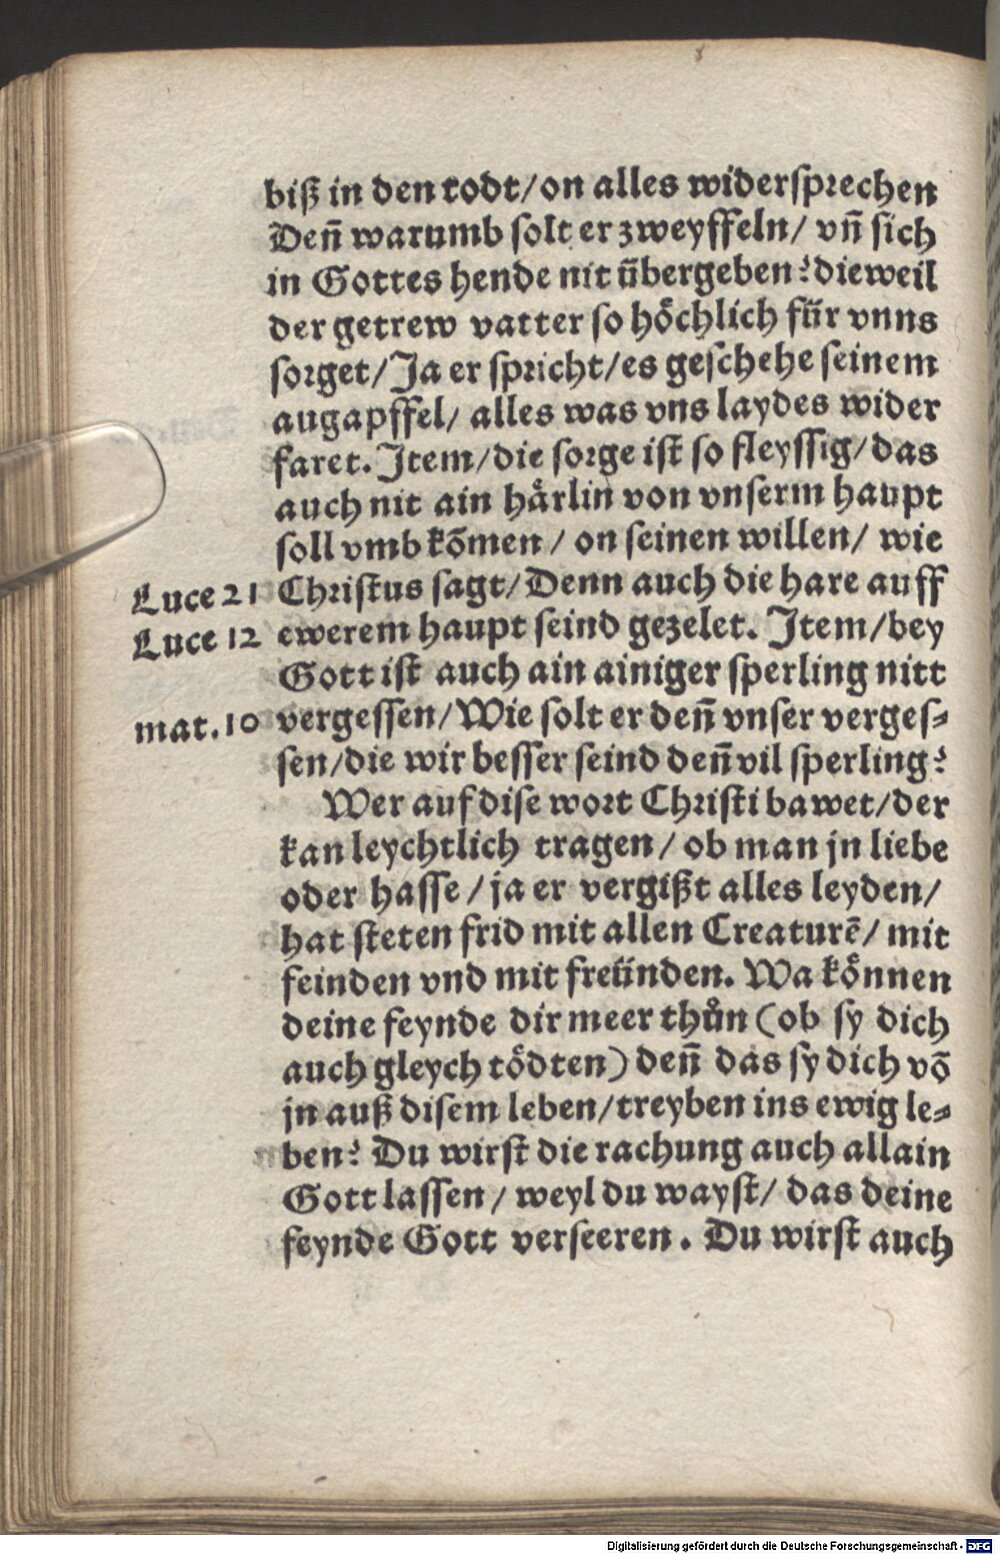 biß in den todt/on alles widersprechen
Deñ warumb solt er zweyffeln/ vñ sich
in Gottes hende nit übergeben? dieweil
der getrew vatter so höchlich für vnns
sorget/Ja er spricht/es geschehe seinem
augapffel/ alles was vns laydes wider
faret. Item/die sorge ist so fleyssig/das
auch nit ain härlin von vnserm haupt
soll vmb kõmen/ on seinen willen/ wie
Luce 21 Christus sagt/Denn auch die hare auff
Luce 12 ewerem haupt seind gezelet. Item/bey
Gott ist auch ain ainiger sperling nitt
mat.10 vergessen/Wie solt er deñ vnser verges⸗
sen/die wir besser seind deñ vil sperling?
Wer auf dise wort Christi bawet/der
kan leychtlich tragen/ ob man jn liebe
oder hasse/ja er vergißt alles leyden/
hat steten frid mit allen Creaturẽ/ mit
feinden vnd mit freünden. Wa können
deine feynde dir meer thůn (ob sy dich
auch gleych tödten) deñ das sy dich võ
jn auß disem leben/treyben ins ewig le⸗
ben? Du wirst die rachung auch allain
Gott lassen/ weyl du wayst/ das deine
feynde Gott verseeren. Du wirst auch
Digitalisierung gefördert durch die Deutsche Forschungsgemeinschaft - DFG